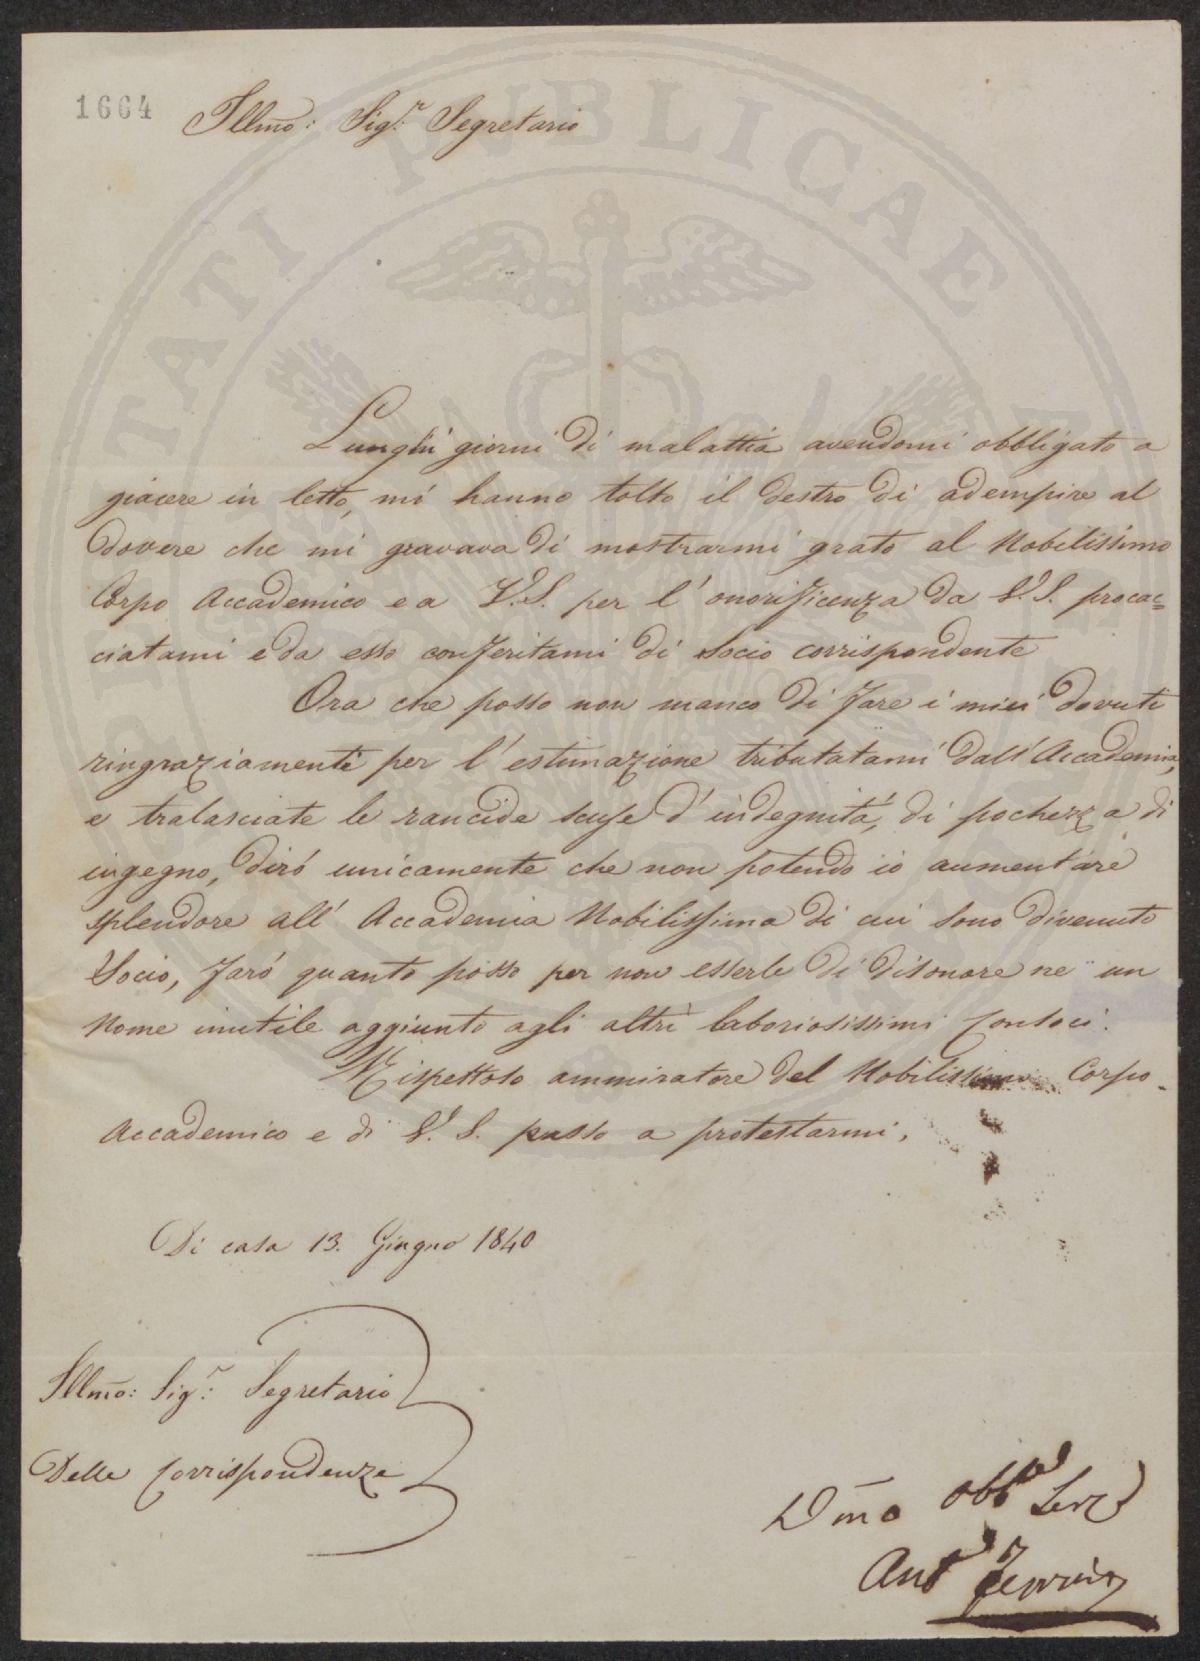 1664
Illmo: Sig.r Segretario
Lunghi giorni di malattia avendomi obbligato a
giacere in letto, mi hanno tolto il destro di adempire al
dovere che mi gravava di mostrarmi grato al Nobilissimo
Corpo Accademico e a V.S. per l'onorificenza da V.S. procac=
ciatami e da esso conferitami di socio corrispondente
Ora che posso non manco di fare i miei dovuti
ringraziamenti per l'estimazione tributatami dall'Accademia,
e tralasciate le rancide scuse d'indegnità, di pochezza di
ingegno, dirò unicamente che non potendo io aumentare
splendore all'Accademia Nobilissima di cui sono divenuto
Socio, farò quanto posso per non esserle di disonore ne un
nome inutile aggiunto agli altri laboriosissimi Consoci.
Rispettoso ammiratore del Nobilissimo Corpo
Accademico e di V.S. passo a protestarmi.
Di casa 13. Giugno 1840
Illmo: Sig.r Segretario
Delle Corrispondenze
Dmo Obbmo Serv
Ant